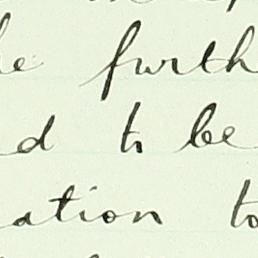 he furth
d to be
ation to